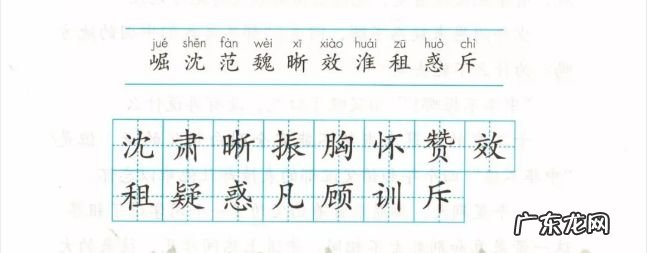 jué shěn fàn wèi xī xiào huái zū huò chì
崛 沈 范 魏 晰 效 淮 租 惑 斥
沈 肃 晰 振 胸 怀 赞 效
租 疑 惑 凡 顾 训 斥
广东龙网